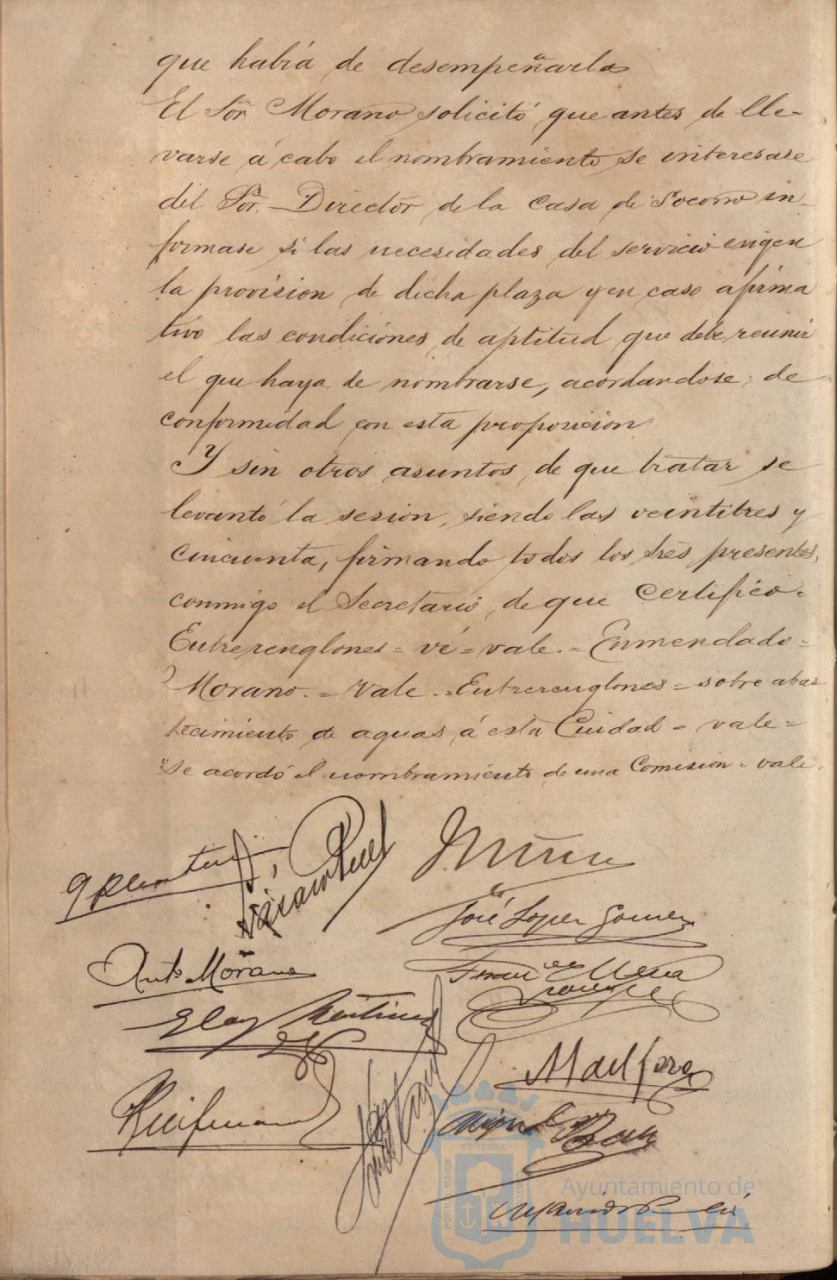 que habia de desempeñarla
El Sor. Morano solicitó que antes de lle-
varse á cabo el nombramiento se interesase
del Sor. Director de la Casa de Socorro in-
formase si las necesidades del servicio exigen
la provision de dicha plaza y en caso afirma
tivo las condiciones de aptitud que debe reunir
el que haya de nombrarse, acordandose, de
conformidad con esta proposicion
Y sin otros asuntos de que tratar se
levantó la sesion, siendo las veintitres y
cincuenta, firmando todos los Sres presentes,
conmigo el Secretario, de que certifico.
Entrerenglones = vé = vale. = Enmendado =
Morano. = Vale. = Entrerenglones = sobre abas
tecimiento de aguas á esta Ciudad = vale =
se acordó el nombramiento de una Comision = vale.
José Lopez Gomez
Antº Morano
Eloy Martinez
ET TERRA
PORTUS MARIS
Ayuntamiento de
HUELVA